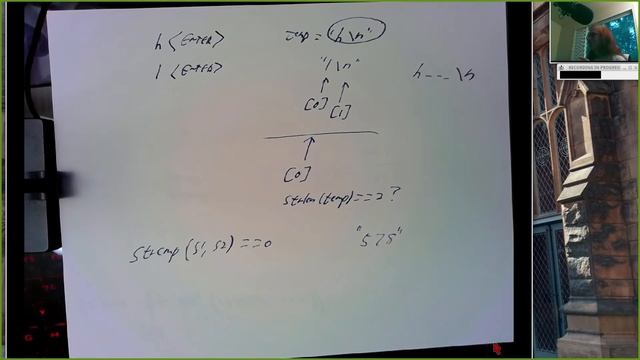 h <ENTER> temp = "h\n"
l <ENTER> "l\n" h---\n
[0] [1]
[0]
strlen(temp)==2?
strcmp(s1, s2)==0 "575"
RECORDING IN PROGRESS